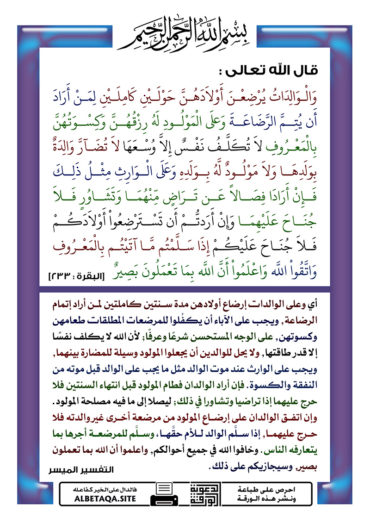 بسم الله الرحمن الرحيم
قال الله تعالى :
وَالْوَالِدَاتُ يُرْضِعْنَ أَوْلاَدَهُنَّ حَوْلَيْنِ كَامِلَيْنِ لِمَنْ أَرَادَ
أَن يُتِمَّ الرَّضَاعَةَ وَعَلَى الْمَوْلُودِ لَهُ رِزْقُهُنَّ وَكِسْوَتُهُنَّ
بِالْمَعْرُوفِ لاَ تُكَلَّفُ نَفْسٌ إِلاَّ وُسْعَهَا لاَ تُضَآرَّ وَالِدَةٌ
بِوَلَدِهَا وَلاَ مَوْلُودٌ لَّهُ بِوَلَدِهِ وَعَلَى الْوَارِثِ مِثْلُ ذَلِكَ
فَإِنْ أَرَادَا فِصَالاً عَن تَرَاضٍ مِّنْهُمَا وَتَشَاوُرٍ فَلاَ
جُنَاحَ عَلَيْهِمَا وَإِنْ أَرَدتُّمْ أَن تَسْتَرْضِعُواْ أَوْلاَدَكُمْ
فَلاَ جُنَاحَ عَلَيْكُمْ إِذَا سَلَّمْتُم مَّا آتَيْتُم بِالْمَعْرُوفِ
وَاتَّقُواْ اللَّهَ وَاعْلَمُواْ أَنَّ اللَّهَ بِمَا تَعْمَلُونَ بَصِيرٌ [البقرة : ٢٣٣]
أي وعلى الوالدات إرضاع أولادهن مدة سنتين كاملتين لمن أراد إتمام
الرضاعة, ويجب على الآباء أن يكفُلوا للمرضعات المطلقات طعامهن
وكسوتهن, على الوجه المستحسن شرعًا وعرفًا; لأن الله لا يكلف نفسًا
إلا قدر طاقتها, ولا يحل للوالدين أن يجعلوا المولود وسيلة للمضارة بينهما,
ويجب على الوارث عند موت الوالد مثل ما يجب على الوالد قبل موته من
النفقة والكسوة. فإن أراد الوالدان فطام المولود قبل انتهاء السنتين فلا
حرج عليهما إذا تراضيا وتشاورا في ذلك; ليصلا إلى ما فيه مصلحة المولود.
وإن اتفق الوالدان على إرضاع المولود من مرضعة أخرى غير والدته فلا
حرج عليهما, إذا سلَّم الوالد للأم حقَّها, وسلَّم للمرضعة أجرها بما
يتعارفه الناس. وخافوا الله في جميع أحوالكم, واعلموا أن الله بما تعملون
بصير, وسيجازيكم على ذلك. التفسير الميسر
احرص على طباعة
ونشر هذه الورقة
الدعوية
الورقة
فالدال على الخير كفاعله
ALBETAQA.SITE